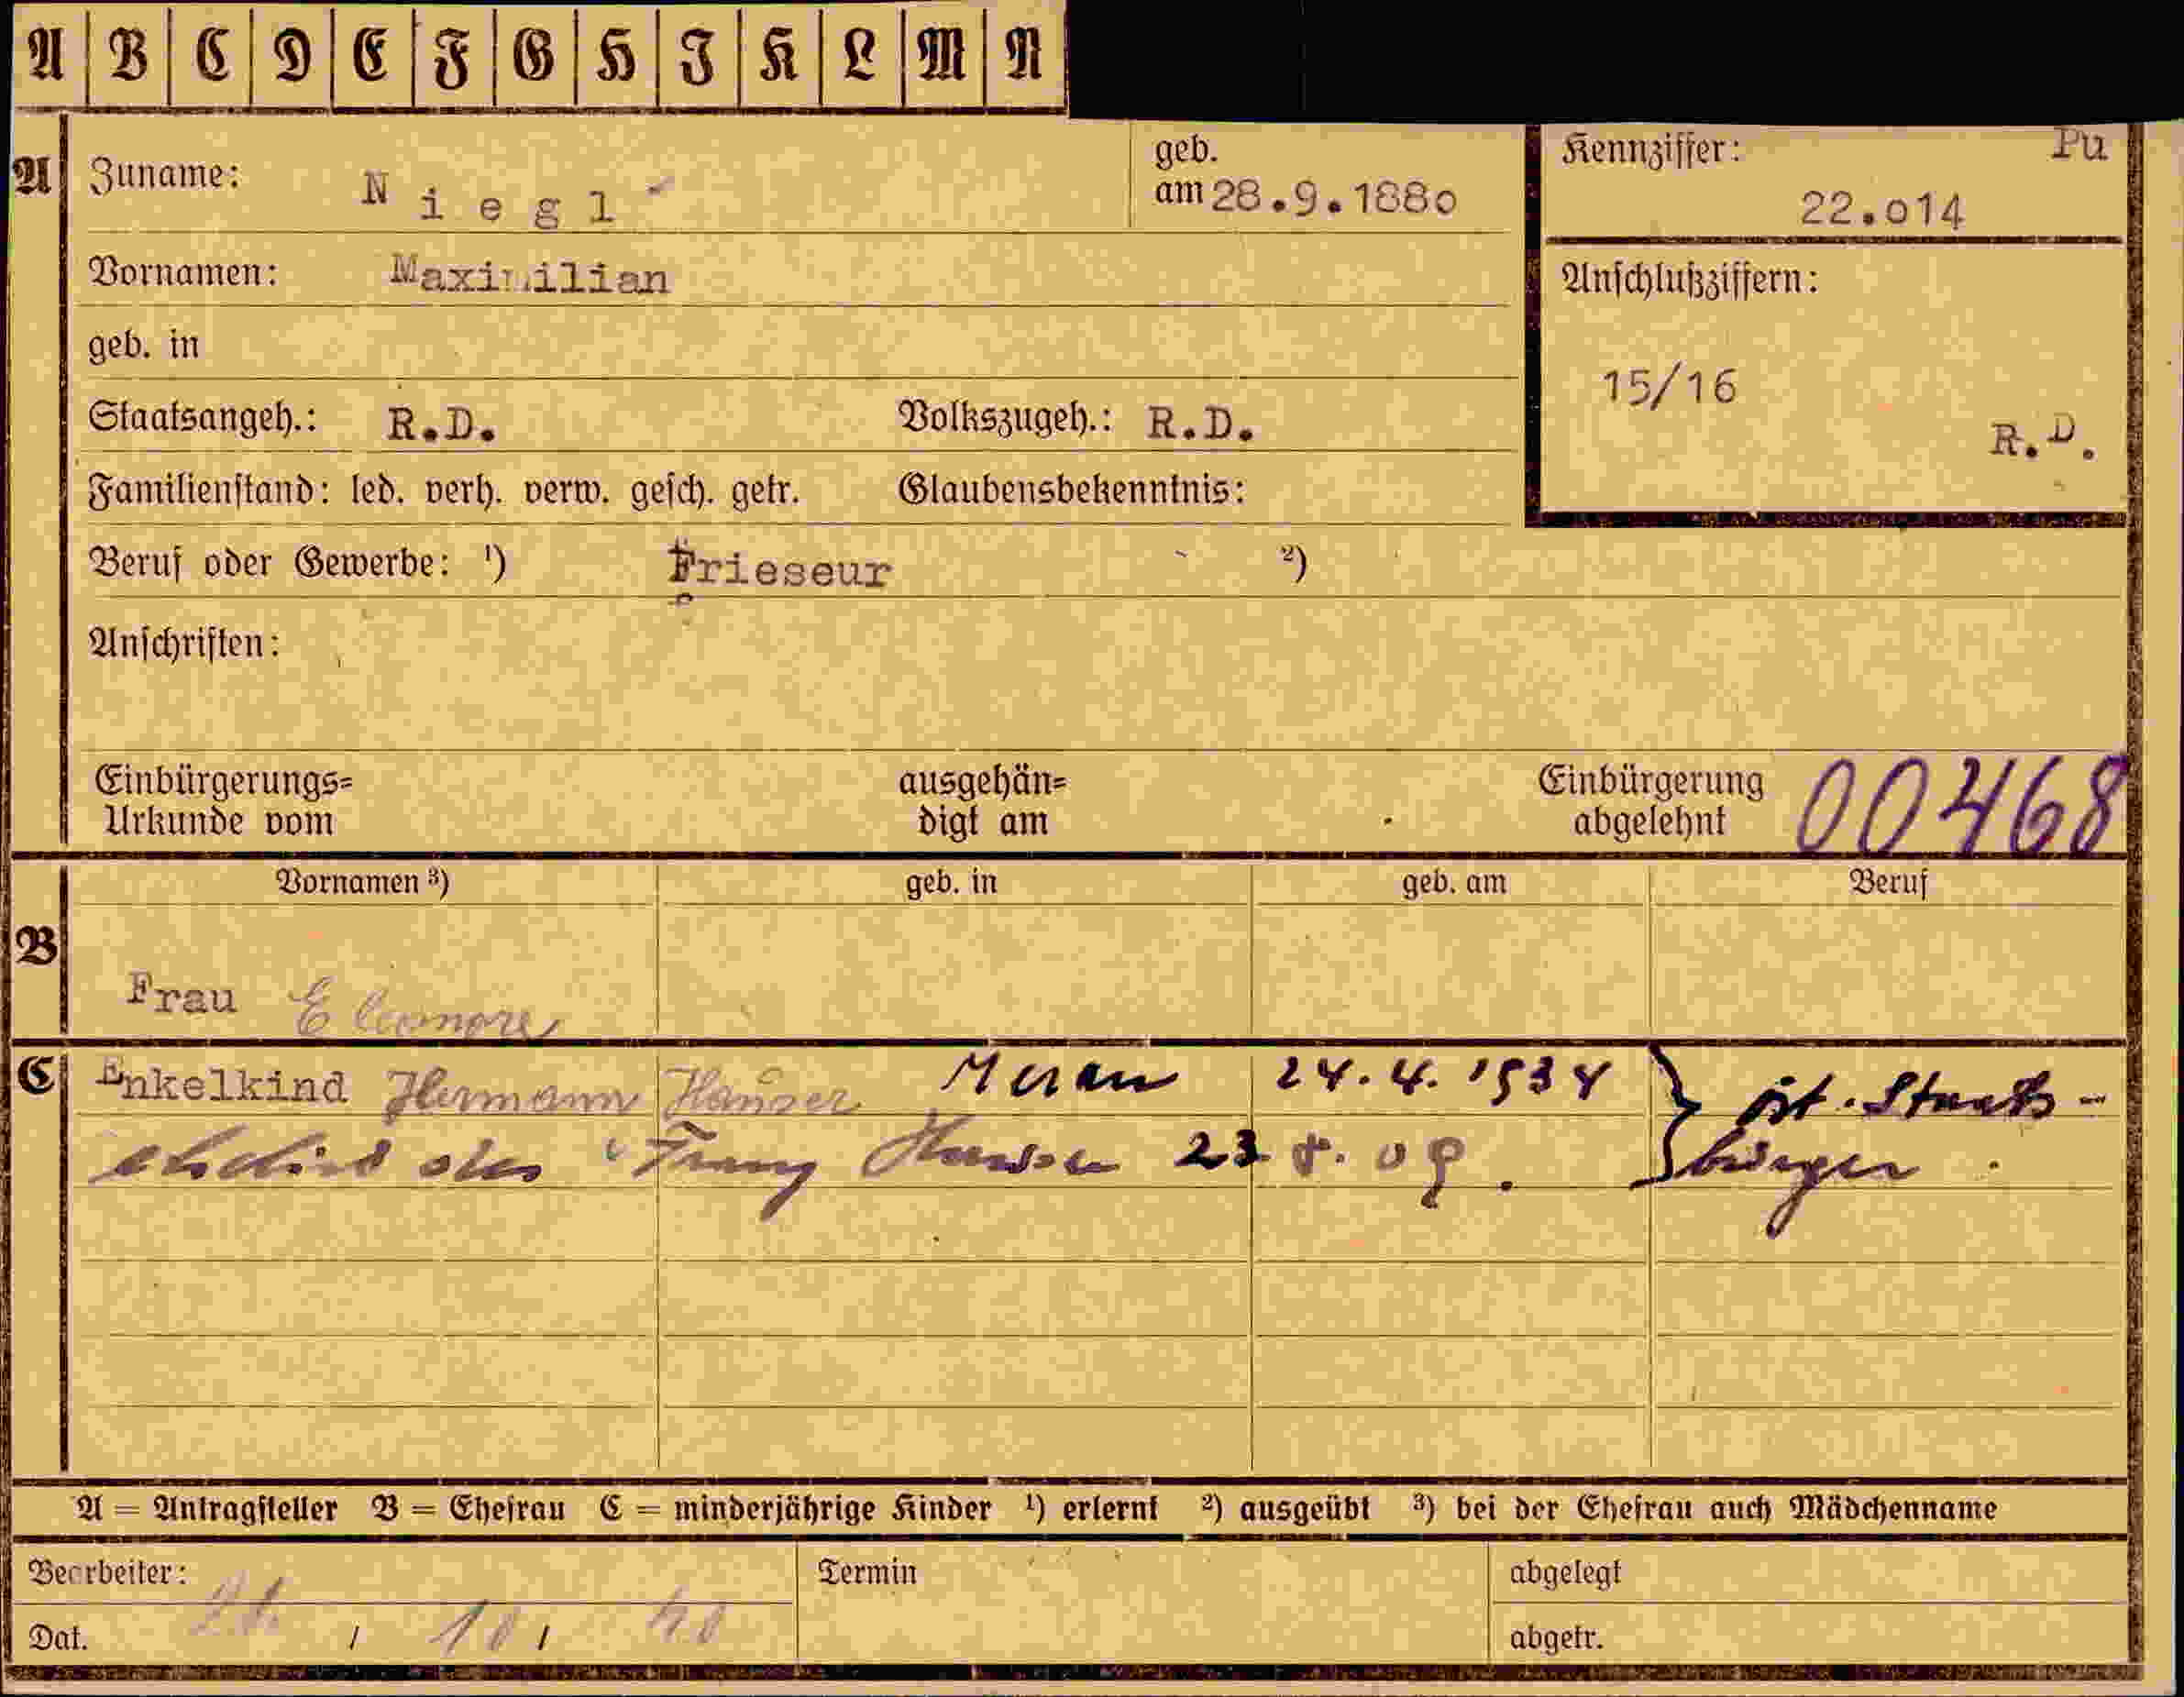 A B C D E F G H I K L M N
A Zuname: Niegl geb. am 28.9.1880
Kennziffer: Pu
22.014
Vornamen: Maximilian
Anschlußziffern:
geb. in
15/16
Staatsangeh.: R.D. Volkszugeh.: R.D.
R.D.
Familienstand: led. verh. verw. gesch. getr. Glaubensbekenntnis:
Beruf oder Gewerbe: ¹) Frieseur ²)
Anschriften:
Einbürgerungs= ausgehän= Einbürgerung 00468
Urkunde vom digt am abgelehnt
Vornamen ³) geb. in geb. am Beruf
B
Frau Eleonore
C Enkelkind Hermann Hauser Meran 24.4.1934 öst. Staats-
des Franz Hauser 23 8. 09. bürger.
A = Antragsteller B = Ehefrau C = minderjährige Kinder ¹) erlernt ²) ausgeübt ³) bei der Ehefrau auch Mädchenname
Bearbeiter: Termin abgelegt
Dat. / 10 / 40 abgetr.